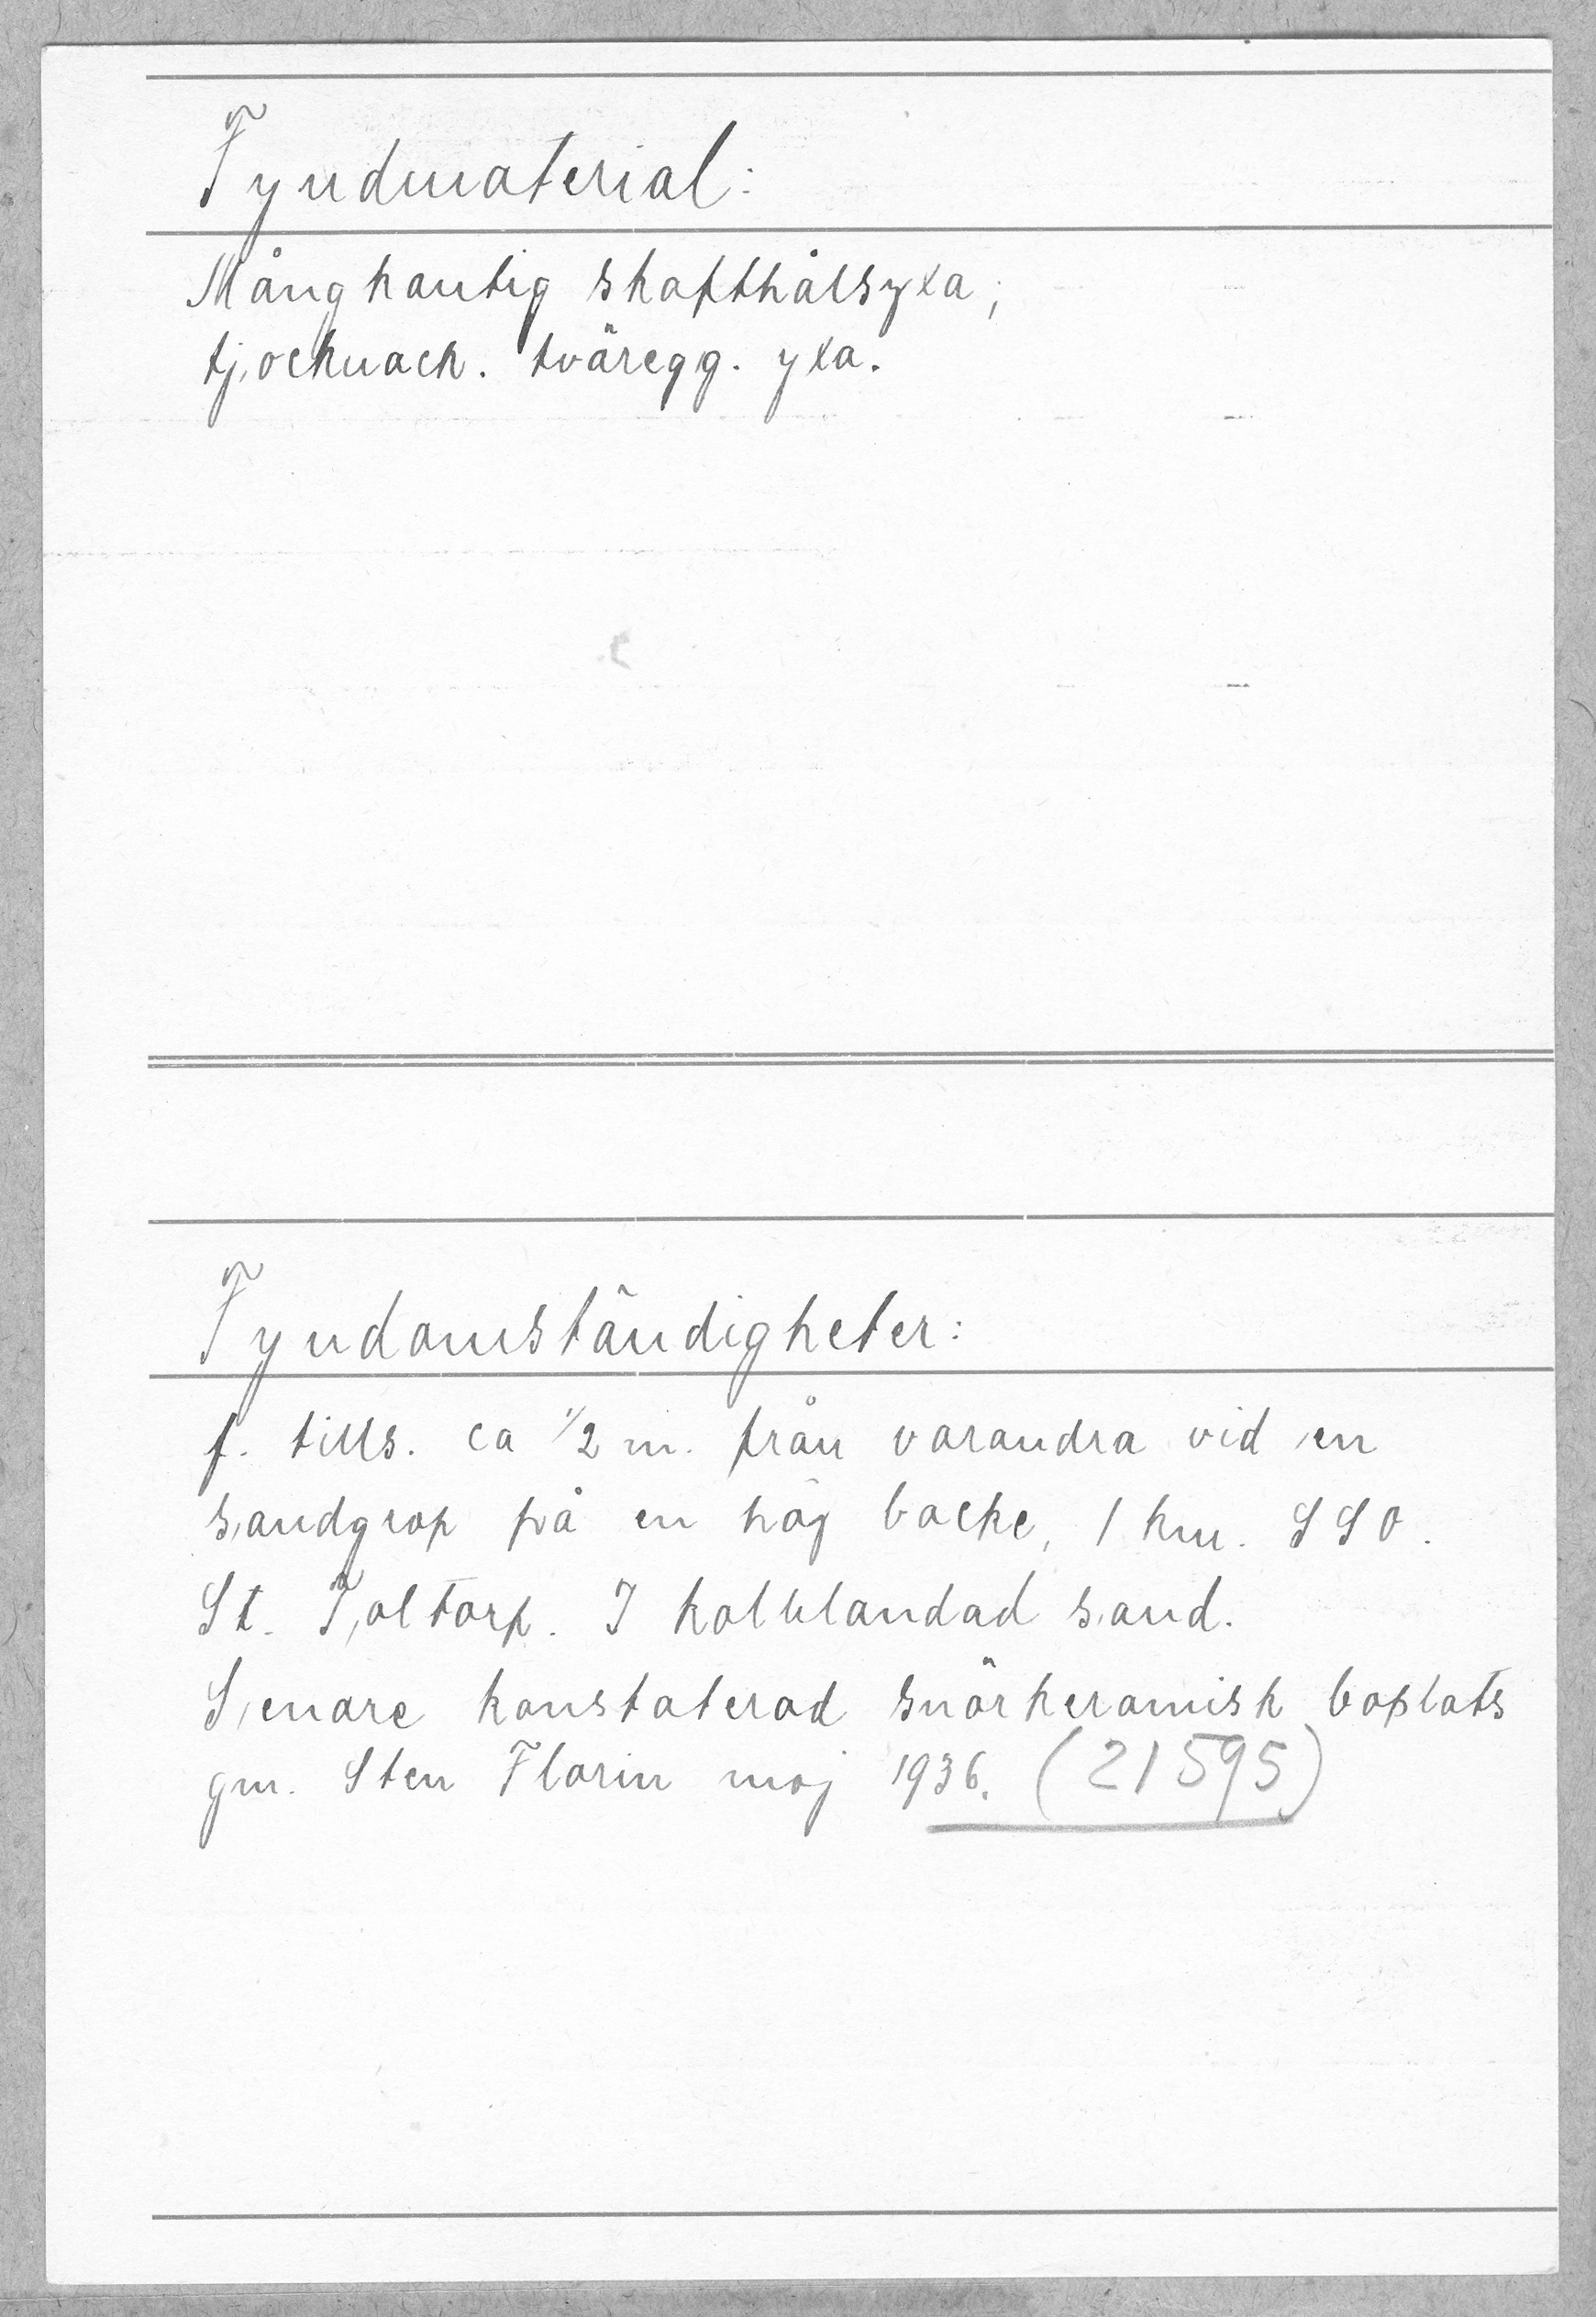 Fyndmaterial:
Mångkantig skafthålsyxa;
tjocknack. tväregg. yxa.
Fyndomständigheter:
f. tills. ca 1/2 m. från varandra vid en
sandgrop på en hög backe, 1 km. SSO.
St. Toltorp. I kolblandad sand.
Senare konstaterad snörkeramisk boplats
gm. Sten Florin maj 1936. (21595)